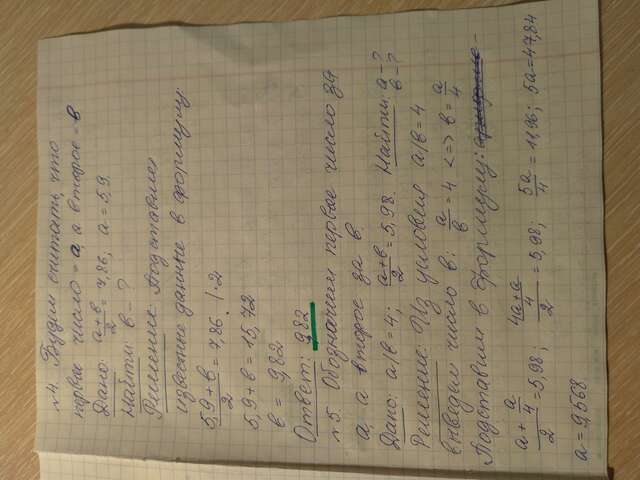 №4. Будем считать, что
первое число = a, а второе = в
Дано: a+в/2 = 7,86, a = 5,9
Найти: в - ?
Решение: Подставляю
известные данные в формулу:
5,9+в/2 = 7,86. |·2
5,9+в = 15,72
в = 9,82
Ответ: 9,82
№5. Обозначим первое число за
а, а второе за в.
Дано: a/в = 4; a+в/2 = 5,98. Найти: a - ? в - ?
Решение: Из условия a/в = 4
Выведим число в: a/в = 4 <=> в = a/4
Подставим в формулу:
a + a/4 / 2 = 5,98; 4a+a/4 / 2 = 5,98; 5a/4 = 11,96; 5a = 47,84
a = 9,568